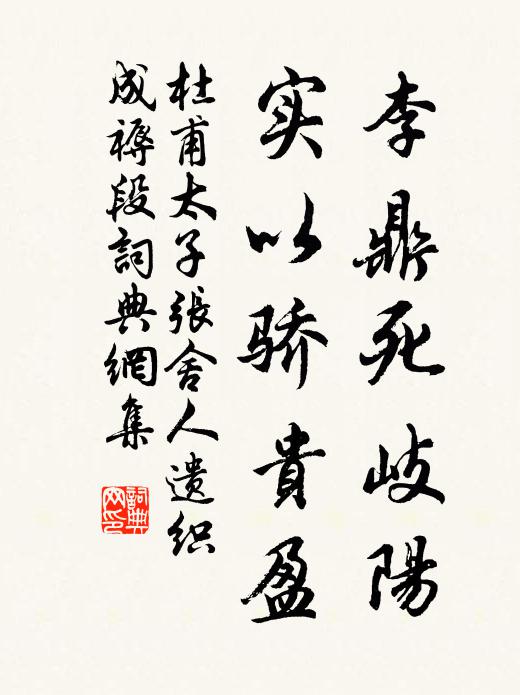 李鼎死岐陽
实以骄貴盈
杜甫太子張舍人遗织
成褥段詞典網集
詞典
网印